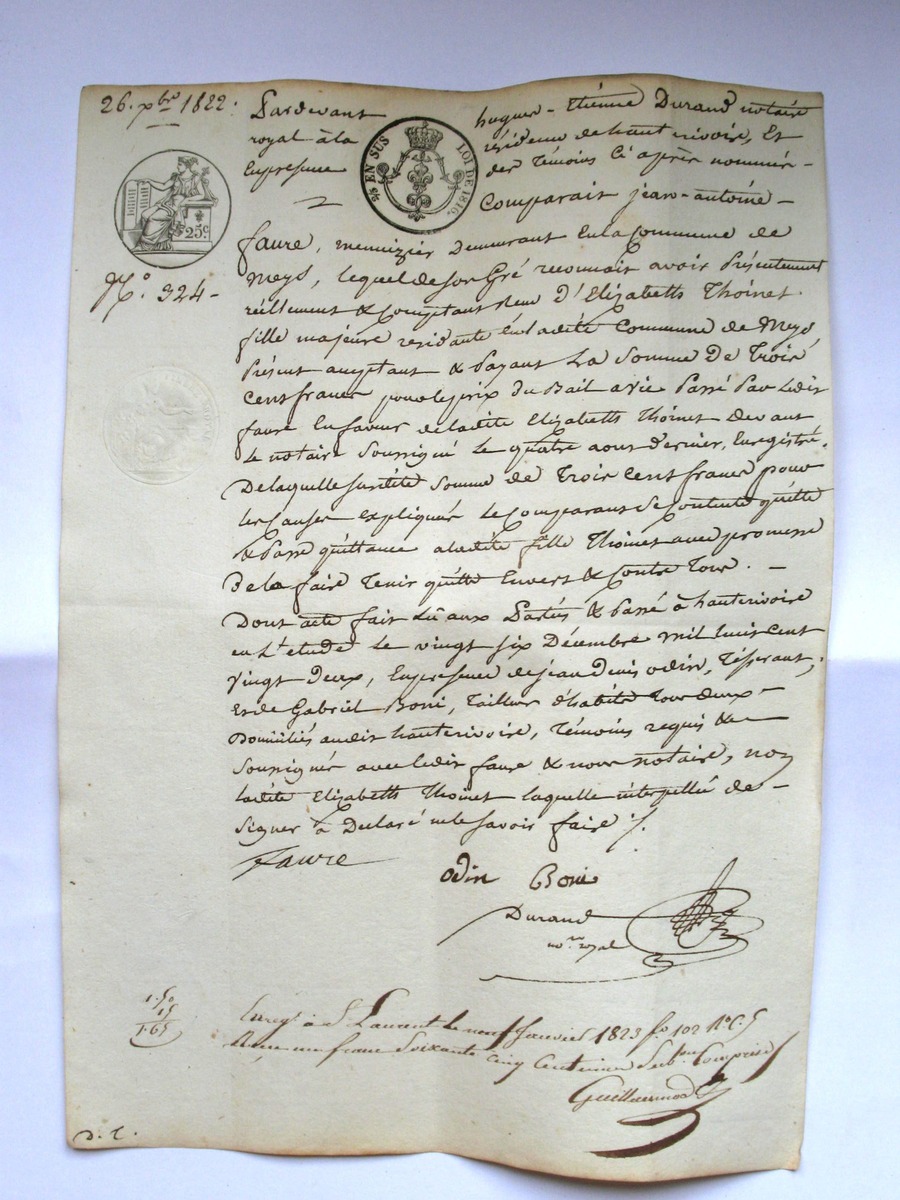 26. xbre 1822.
Pardevant hugues-Etiénne Durand notaire
royal à la résidence de haut rivoire, Et
En presence des Témoins Ci après nommés-
Comparait jean-antoine-
2/5 EN SUS LOI DE 1816.
25c
N.o 324-
faure, menuizier demeurant En la Commune de
Meys, lequel de son Gré reconnait avoir Présentement
réellement & Comptant Reçu D'Elizabeth Thoinet
fille majeure residante En ladite Commune de Meys
Présent acceptant & Payant La Somme De Trois
Cent francs pour le prix du Bail a vie Passé Par Ledit
faure En faveur de ladite Elizabeth Thoinet Devant
Le notaire Soussigné Le quatre aoust dernier, Enregistré.
De laquelle susdite Somme de Trois Cent francs pour
les Causes Expliquées le Comparant Se Contente quitte
& Passe quittance a ladite fille Thoinet avec promesse
De la faire Tenir quitte Envers & Contre Tous. -
Dont acte fait Lû aux Parties & Passé à hauterivoire
en L'etude Le vingt six Décembre mil huit cent
vingt deux, En presence de jean Denis odin, Tisserant,
Et de Gabriel Boni, Tailleur d'habits Tous deux-
Domiciliés audit hauterivoire, Témoins requis &
Soussignés avec Ledit faure & nous notaire, non
ladite Elizabeth Thoinet laquelle interpellée de-
Signer à Déclaré ne le Savoir faire ./.
Faure
Odin Boni
Durand
no.re royal
1.50
15
1.65
Enreg.é à St Laurent le neuf Janvier 1823 fo 102 Ro C. 5
Reçu un franc Soixante Cinq Centimes Subon Comprise
Guillermod
D. T.